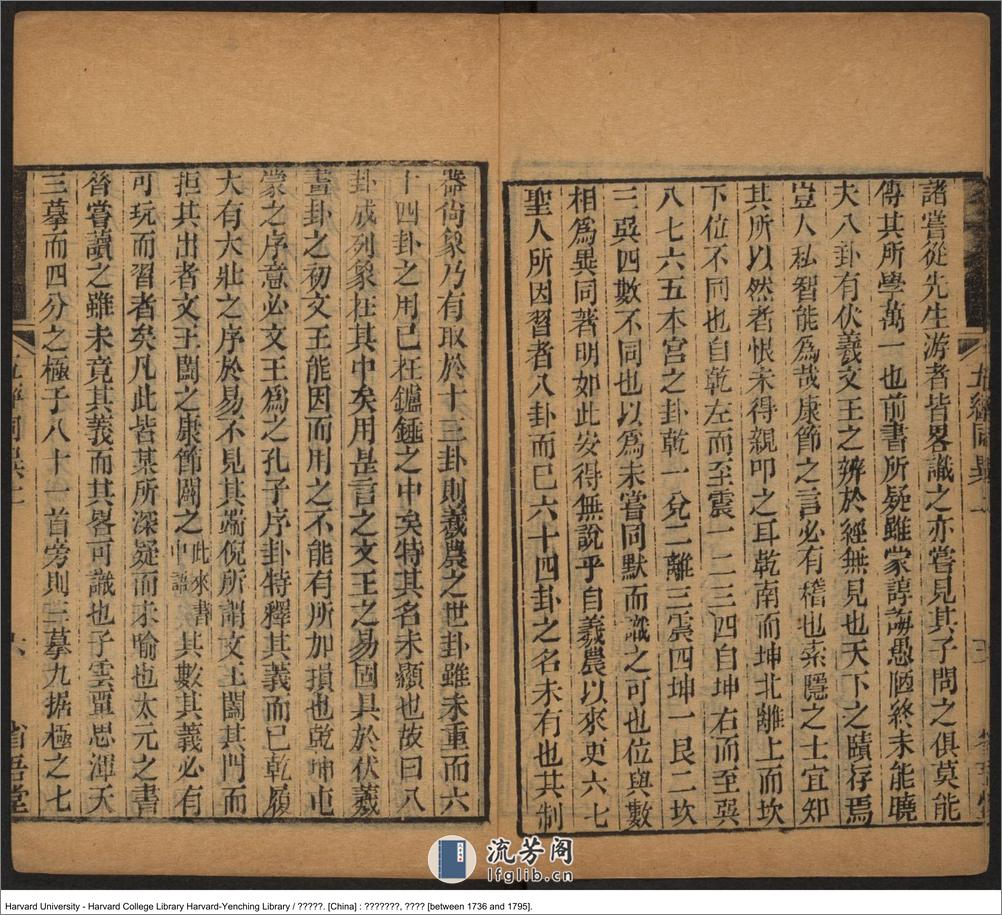 諸嘗從先生游者皆畧識之亦嘗見其子問之俱莫能
傳其所學萬一也前書所疑雖蒙諄誨愚陋終未能曉
夫八卦有伏羲文王之辨於經無見也天下之賾存焉
豈人私智能為哉康節之言必有稽也索隱之士宜知
其所以然者恨未得親叩之耳乾南而坤北離上而坎
下位不同也自乾左而至震一二三四自坤右而至巽
八七六五本宮之卦乾一兌二離三震四坤一艮二坎
三巽四數不同也以為未嘗同默而識之可也位與數
相為異同著明如此安得無說乎自羲農以來更六七
聖人所因習者八卦而已六十四卦之名未有也其制
器尚象乃有取於十三卦則羲農之世卦雖未重而六
十四卦之用已在鑪錘之中矣特其名未顯也故曰八
卦成列象在其中矣用是言之文王之易固具於伏羲
畫卦之初文王能因而用之不能有所加損也乾坤屯
蒙之序意必文王為之孔子序卦特釋其義而已乾履
大有大壯之序於易不見其端倪所謂文王闔其門而
拒其出者文王闔之康節闢之此來書中語其數其義必有
可玩而習者矣凡此皆某所深疑而求喻也太元之書
昝嘗讀之雖未竟其義而其畧可識也子雲覃思渾天
三摹而四分之極于八十一首旁則三摹九据極之七
五經同異上
六
省吾堂
流芳阁
lfglib.cn
Harvard University - Harvard College Library Harvard-Yenching Library / ?????. [China] : ???????, ???? [between 1736 and 1795].